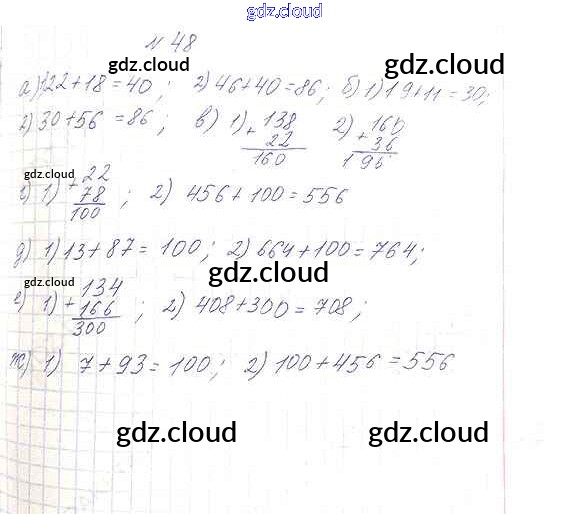 gdz.cloud
№ 48
gdz.cloud gdz.cloud
а) 1) 22+18=40; 2) 46+40=86; б) 1) 19+11=30;
2) 30+56=86; в) 1) + 138 2) + 160
gdz.cloud
22 36
160 196
gdz.cloud
г) 1) + 22
78 ; 2) 456+100=556
100
д) 1) 13+87=100; 2) 664+100=764;
gdz.cloud
gdz.cloud
е) 1) + 134
166 ; 2) 408+300=708;
300
ж) 1) 7+93=100; 2) 100+456=556
gdz.cloud gdz.cloud